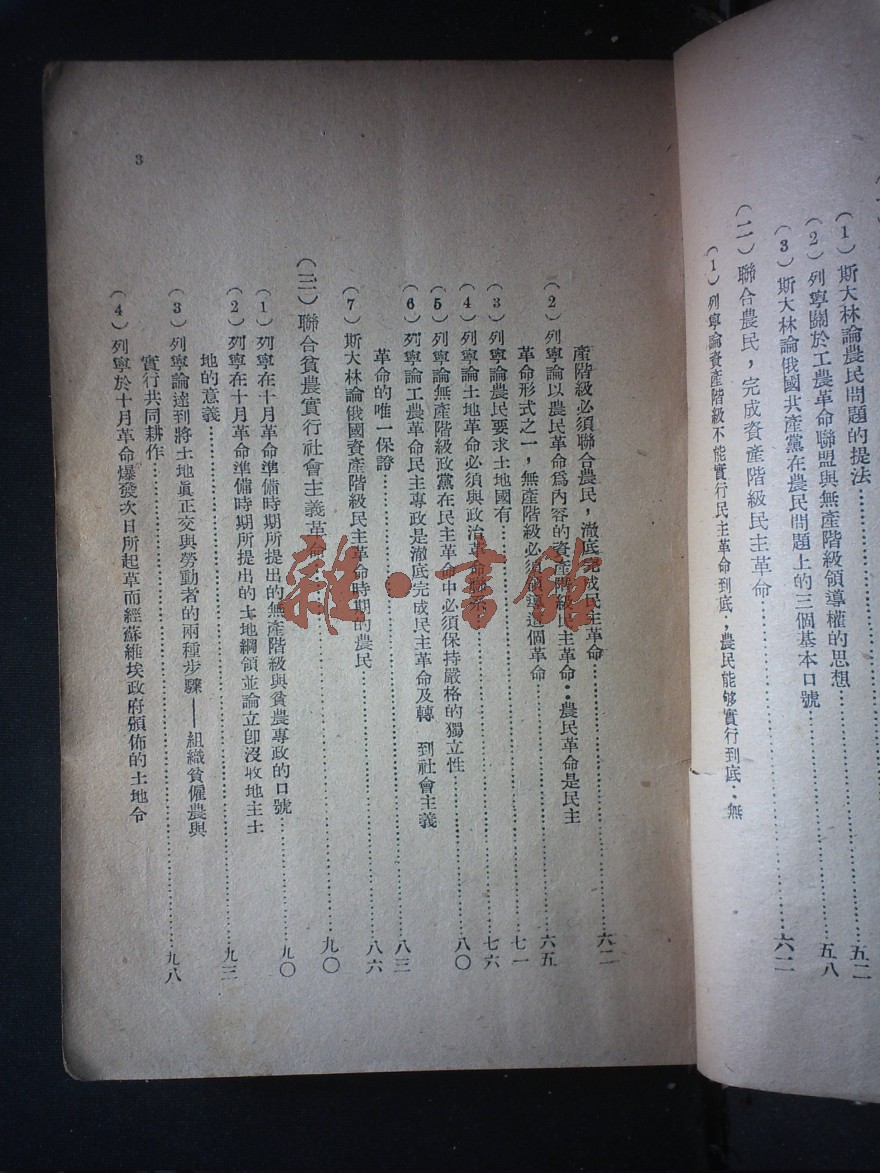 （1）斯大林論農民問題的提法……五二
（2）列寧關於工農革命聯盟與無產階級領導權的思想……五八
（3）斯大林論俄國共產黨在農民問題上的三個基本口號
（二）聯合農民，完成資產階級民主革命……六二
（1）列寧論資產階級不能實行民主革命到底；農民能够實行到底；無
產階級必須聯合農民，澈底完成民主革命……六二
（2）列寧論以農民革命爲內容的資產階級民主革命：農民革命是民主
革命形式之一，無產階級必須領導這個革命……六五
（3）列寧論農民要求土地國有……七一
（4）列寧論土地革命必須與政治革命聯系……七六
（5）列寧論無產階級政黨在民主革命中必須保持嚴格的獨立性……八〇
（6）列寧論工農革命民主專政是澈底完成民主革命及轉 到社會主義
革命的唯一保證……八三
（7）斯大林論俄國資產階級民主革命時期的農民……八六
（三）聯合貧農實行社會主義革命……九〇
（1）列寧在十月革命準備時期所提出的無產階級與貧農專政的口號……九〇
（2）列寧在十月革命準備時期所提出的土地綱領並論立卽沒收地主土
地的意義……九三
（3）列寧論達到將土地眞正交與勞動者的兩種步驟——組織貧僱農與
實行共同耕作……九八
（4）列寧於十月革命爆發次日所起草而經蘇維埃政府頒佈的土地令
3
雜·書館